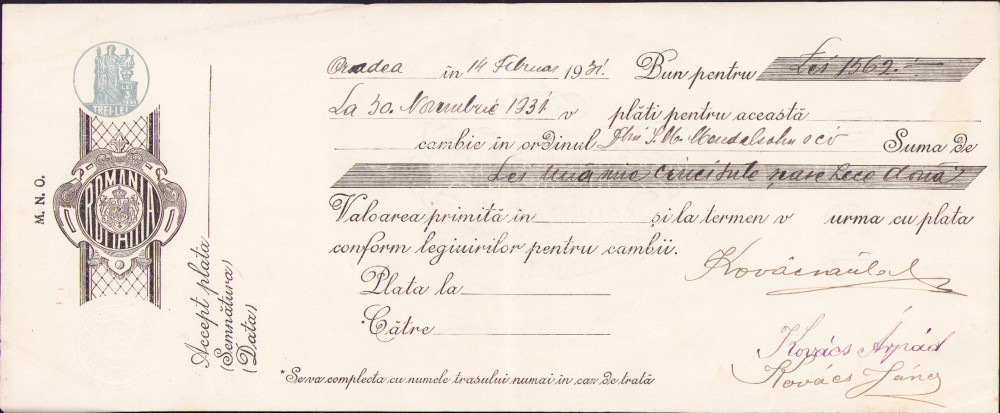 TREI LEI
M. N. O.
ROMANIA
ROMANIA
Accept plata
(Semnătura)
(Data)
Oradea în 14 Februar 1931. Bun pentru Lei 1562.-
La 30. Novembrie 1931 v plăti pentru această
cambie în ordinul Dlui S. M. Mendelsohn Suma de
Lei una mie cinci sute șase zece două
Valoarea primită în și la termen v urma cu plata
conform legiuirilor pentru cambii.
Plata la
*Către
Kovács Árpád
Kovács János
*Se va complecta cu numele trasului numai în caz de trată